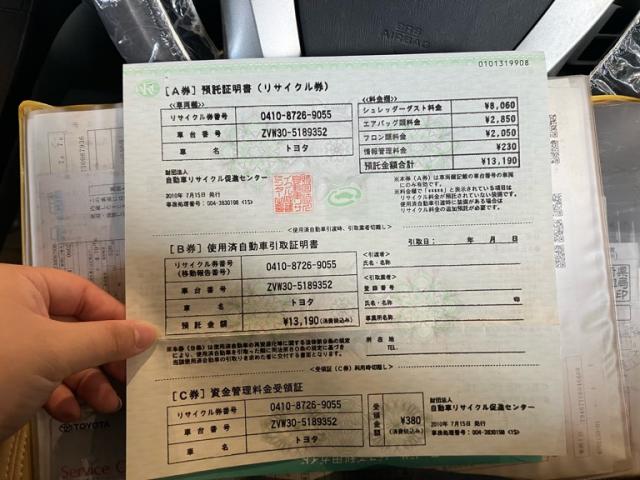 SRS
AIRBAG
0101319908
[A券] 預託証明書(リサイクル券)
<<車両欄>>
リサイクル券番号 0410-8726-9055
車台番号 ZVW30-5189352
車名 トヨタ
<<料金欄>>
シュレッダーダスト料金 ¥8,060
エアバッグ類料金 ¥2,850
フロン類料金 ¥2,050
情報管理料金 ¥230
預託金額合計 ¥13,190
財団法人
自動車リサイクル促進センター
2010年 7月15日 発行
事務処理番号:004-3830198 <1S>
※本券(A券)は車両欄記載の車台番号の車両
にのみ有効です。
※料金欄で「*****」と表示されている項目は
リサイクル料金が預託されていない装備です。
使用済自動車引渡時に装備がある場合は
リサイクル料金の追加預託が必要です。
<使用済自動車引渡時、引取業者切離し>
[B券] 使用済自動車引取証明書
引取日: 年 月 日
リサイクル券番号
(移動報告番号) 0410-8726-9055
車台番号 ZVW30-5189352
車名 トヨタ
預託金額 ¥13,190(消費税込み)
<引渡者>
氏名・名称
<引取業者>
登録番号
氏名・名称 印
事業所名称
所在地
TEL.
<受領証(C券)利用時切離し>
[C券] 資金管理料金受領証
リサイクル券番号 0410-8726-9055
車台番号 ZVW30-5189352
車名 トヨタ
受領金額 ¥380
(消費税込み)
財団法人
自動車リサイクル促進センター
2010年 7月15日 発行
事務処理番号:004-3830198 <1S>
TOYOTA